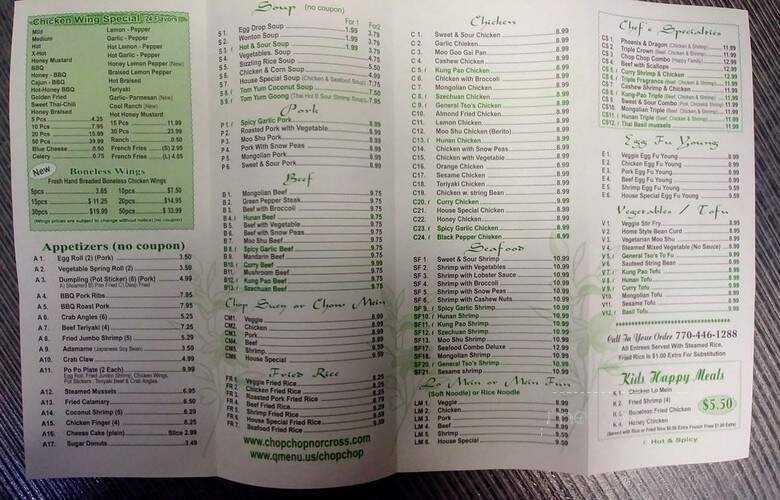 Chicken Wing Special 24 Flavors
Mild
Medium
Hot
X-Hot
Honey Mustard
BBQ
Honey - BBQ
Cajun - BBQ
Hot-Honey BBQ
Golden Fried
Sweet Thai-Chili
Honey Braised
Lemon - Pepper
Garlic - Pepper
Hot Lemon - Pepper
Hot Garlic - Pepper
Honey Lemon Pepper (New)
Braised Lemon Pepper
Hot Braised
Teriyaki
Garlic- Parmesan (New)
Cool Ranch (New)
Hot Honey Mustard
5 Pcs 4.25 15 Pcs 11.99
10 Pcs 7.95 30 Pcs 23.99
20 Pcs 15.99 Ranch .50
50 Pcs 39.99 French Fries (S) 2.95
Blue Cheese 0.50 French Fries (L) 4.85
Celery 0.75
New
Boneless Wings
Fresh Hand Breaded Boneless Chicken Wings
5pcs 3.85 10pcs $7.50
15pcs $ 11.25 20pcs $14.95
30pcs $19.99 50pcs $ 33.99
(Wings prices are subject to change without notice) (no coupon)
Appetizers (no coupon)
A 1. Egg Roll (2) (Pork) 3.50
A 2. Vegetable Spring Roll (2) 3.50
A 3. Dumpling (Pot Sticker) (6) (Pork) 4.99
A) Steamed B) Pan Fried C) Deep Fried
A4. BBQ Pork Ribs 7.95
A5. BBQ Roast Pork 7.95
A6. Crab Angles (6) 5.25
A7. Beef Teriyaki (4) 7.25
A8. Fried Jumbo Shrimp (5) 5.29
A9. Adamame (Japanese Soy Bean) 3.59
A10. Crab Claw 4.99
A11. Po Po Plate (2 Each) 9.99
Egg Roll, Fried Jumbo Shrimp, Chicken Wings,
Pot Stickers, Teriyaki Beef & Crab Angles.
A12. Steamed Mussels 6.95
A13. Fried Calamary 6.50
A14. Coconut Shrimp (5) 6.29
A15. Chicken Finger (4) 6.25
A16. Cheese Cake (plain) Slice 2.99
A17. Sugar Donuts 3.49
Soup (no coupon)
For 1 For2
S 1. Egg Drop Soup 1.99 3.75
S 2. Wonton Soup 1.99 3.75
S 3. Hot & Sour Soup 1.99 3.75
S 4. Vegetables. Soup
S 5. Sizzling Rice Soup
S 6. Chicken & Corn Soup 5.50
S 7. House Special Soup (Chicken & Seafood Soup) 7.75
S 8. Tom Yum Coconut Soup 7.50
S 9. Tom Yum Goong (Thai Hot & Sour Shrimp Soup) 7.95
Pork
P 1. Spicy Garlic Pork 8.99
P 2. Roasted Pork with Vegetable 8.99
P 3. Moo Shu Pork 8.99
P4. Pork With Snow Peas 8.99
P5. Mongolian Pork 8.99
P 6. Sweet & Sour Pork 8.99
Beef
B 1. Mongolian Beef 9.75
B 2. Green Pepper Steak 9.75
B 3. Beef with Broccoli 9.75
B 4. Hunan Beef 9.75
B 5. Beef with Vegetable 9.75
B 6. Beef with Snow Peas 9.75
B 7. Moo Shu Beef 9.75
B 8. Spicy Garlic Beef 9.75
B 9. Mandarin Beef 9.75
B10. Curry Beef 9.75
B11. Mushroom Beef 9.75
B12. Kung Pao Beef 9.75
B13. Szechuan Beef 9.75
Chop Suey or Chow Mein
CM1. Veggie
CM2. Chicken
CM3. Pork
CM4. Beef
CM5. Shrimp
CM6. House Special
Fried Rice
FR 1. Veggie Fried Rice 8.25
FR 2. Chicken Fried Rice 8.25
FR 3. Roasted Pork Fried Rice 8.25
FR 4. Beef Fried Rice 8.25
FR 5. Shrimp Fried Rice
FR 6. House Special Fried Rice
FR 7. Seafood Fried Rice
www.chopchopnorcross.com
www.qmenu.us/chopchop
Chicken
C 1. Sweet & Sour Chicken 8.99
C 2. Garlic Chicken 8.99
C 3. Moo Goo Gai Pan 8.99
C 4. Cashew Chicken 8.99
C 5. Kung Pao Chicken 8.99
C 6. Chicken with Broccoli 8.99
C 7. Mongolian Chicken 8.99
C 8. Szechuan Chicken 8.99
C 9. General Tso's Chicken 8.99
C10. Almond Fried Chicken 8.99
C11. Lemon Chicken 8.99
C12. Moo Shu Chicken (Berito) 8.99
C13. Hunan Chicken 8.99
C14. Chicken with Snow Peas 8.99
C15. Chicken with Vegetable 8.99
C16. Orange Chicken 8.99
C17. Sesame Chicken 8.99
C18. Teriyaki Chicken 8.99
C19. Chicken w. string Bean 8.99
C20. Curry Chicken 8.99
C21. House Special Chicken 8.99
C22. Honey Chicken 8.99
C23. Spicy Garlic Chicken 8.99
C24. Black Pepper Chicken 8.99
Seafood
SF 1. Sweet & Sour Shrimp 10.99
SF 2. Shrimp with Vegetables 10.99
SF 3. Shrimp with Lobster Sauce 10.99
SF 4. Shrimp with Broccoli 10.99
SF 5. Shrimp with Snow Peas 10.99
SF 6. Shrimp with Cashew Nuts 10.99
SF 9. Spicy Garlic Shrimp 10.99
SF10. Hunan Shrimp 10.99
SF11. Kung Pao Shrimp 10.99
SF12. Szechuan Shrimp 10.99
SF13. Moo Shu Shrimp 10.99
SF17. Seafood Combo Deluxe 12.99
SF18. Mongolian Shrimp 10.99
SF20. General Tso's Shrimp 10.99
SF21. Sesame shrimp 10.99
Lo Mein or Mein Fun
(Soft Noodle) or Rice Noodle
LM 1. Veggie
LM 2. Chicken
LM 3. Pork
LM 4. Beef
LM 5. Shrimp
LM 6. House Special
Chef's Specialties
CS 1. Phoenix & Dragon (Chicken & Shrimp) 11.99
CS 2. Triple Crown (Beef, Chicken & Shrimp) 11.99
CS 3. Chop Chop Combo (Happy Family) 12.99
CS 4. Beef with Scallops 12.99
CS 5. Curry Shrimp & Chicken 11.99
CS 6. Triple Fragrance (Beef, Chicken & Shrimp) 11.99
CS 7. Cashew Shrimp & Chicken 11.99
CS 8. Kung-Pao Triple (Beef, Chicken & Shrimp) 11.99
CS 9. Sweet & Sour Combo (Pork, Chicken& Shrimp) 11.99
CS10. Mongolian Triple (Beef, Chicken & Shrimp) 11.99
CS11. Hunan Triple (Beef, Chicken & Shrimp) 11.99
CS12. Thai Basil mussels 11.99
Egg Fu Young
E 1. Veggie Egg Fu Young 8.99
E 2. Chicken Egg Fu Young 8.99
E 3. Pork Egg Fu Young 8.99
E 4. Beef Egg Fu Young 8.99
E 5. Shrimp Egg Fu Young 9.59
E 6. House Special Egg Fu Young 9.59
Vegetables / Tofu
V 1. Veggie Stir Fry 8.99
V 2. Home Style Bean Curd 8.99
V 3. Vegetarian Moo Shu 8.99
V 4. Steamed Mixed Vegetable (No Sauce) 8.99
V 5. General Tso's To Fu 8.99
V 6. Sauteed String Bean 8.99
V 7. Kung Pao Tofu 8.99
V 8. Hunan Tofu 8.99
V 9. Curry Tofu 8.99
V10. Mongolian Tofu 8.99
V11. Sesame Tofu 8.99
V12. Basil Tofu 8.99
Call In Your Order 770-446-1288
All Entrees Served With Steamed Rice,
Fried Rice is $1.00 Extra For Substitution
Kids Happy Meals
K 1. Chicken Lo Mein
K 2. Fried Shrimp (4)
K 3. Boneless Fried Chicken
K 4. Honey Chicken
$5.50
Hot & Spicy